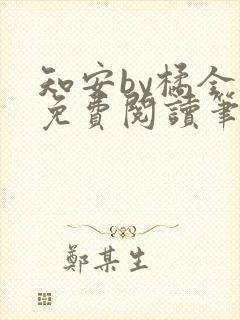 知安by橘余
免費閱讀筆
鄭某生